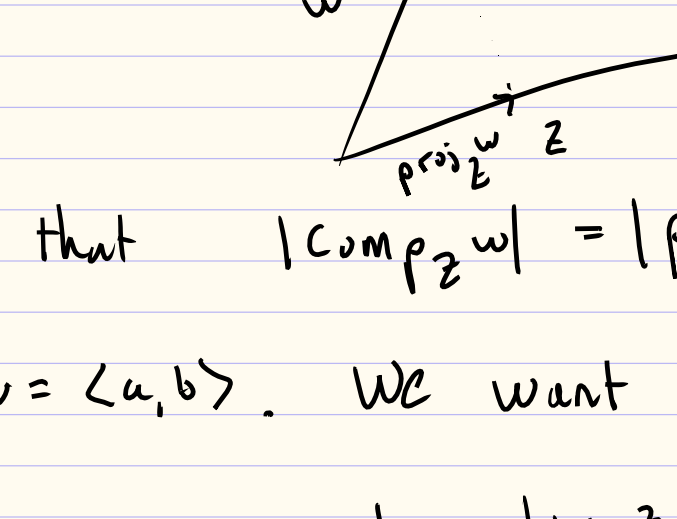 w
z
proj_z w
that |comp_z w| = |
= <a,b>. We want